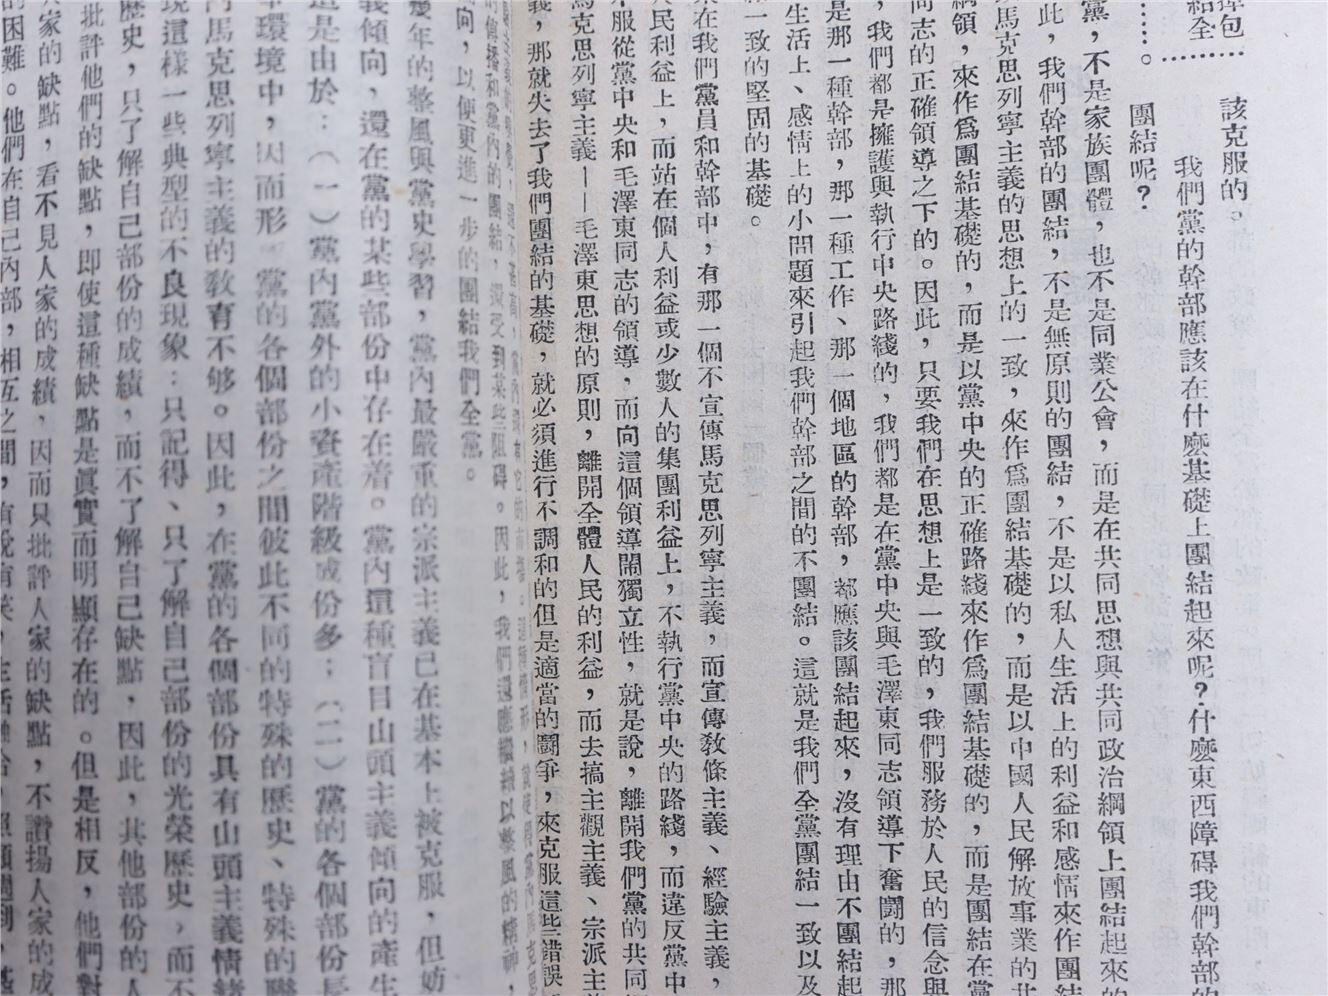 包……
結全……
……。
該克服的。
我們黨的幹部應該在什麽基礎上團結起來呢？什麽東西障碍我們幹部的
團結呢？
黨，不是家族團體，也不是同業公會，而是在共同思想與共同政治綱領上團結起來的
此，我們幹部的團結，不是無原則的團結，不是以私人生活上的利益和感情來作團結
馬克思列寧主義的思想上的一致，來作爲團結基礎的，而是以中國人民解放事業的共
綱領，來作爲團結基礎的，而是以黨中央的正確路綫來作爲團結基礎的，而是團結在黨
同志的正確領導之下的。因此，只要我們在思想上是一致的，我們服務於人民的信念與
，我們都是擁護與執行中央路綫的，我們都是在黨中央與毛澤東同志領導下奮鬪的，那
是那一種幹部，那一種工作、那一個地區的幹部，都應該團結起來，沒有理由不團結起
生活上、感情上的小問題來引起我們幹部之間的不團結。這就是我們全黨團結一致以及
一致的堅固的基礎。
在我們黨員和幹部中，有那一個不宣傳馬克思列寧主義，而宣傳教條主義、經驗主義，
民利益上，而站在個人利益或少數人的集團利益上，不執行黨中央的路綫，而違反黨中
服從黨中央和毛澤東同志的領導，而向這個領導鬧獨立性，就是說，離開我們黨的共同
馬克思列寧主義——毛澤東思想的原則，離開全體人民的利益，而去搞主觀主義、宗派主
義，那就失去了我們團結的基礎，就必須進行不調和的但是適當的鬪爭，來克服這些錯誤
的傳播和黨內的團結，還受到某些阻碍。因此，我們還應繼續以整風的精神，
向，以便更進一步的團結我們全黨。
幾年的整風與黨史學習，黨內最嚴重的宗派主義已在基本上被克服，但妨
義傾向，還在黨的某些部份中存在着。黨內這種盲目山頭主義傾向的產生
是由於：（一）黨內黨外的小資產階級成份多；（二）黨的各個部份長
環境中，因而形 黨的各個部份之間彼此不同的特殊的歷史、特殊的聯
馬克思列寧主義的教育不够。因此，在黨的各個部份具有山頭主義情緒
現這樣一些典型的不良現象：只記得、只了解自己部份的光榮歷史，而不
歷史，只了解自己部份的成績，而不了解自己缺點，因此，其他部份的人
批評他們的缺點，即使這種缺點是眞實而明顯存在的。但是相反，他們對
家的缺點，看不見人家的成績，因而只批評人家的缺點，不讚揚人家的成
的困難。他們在自己內部，相互之間，有說有笑，生活